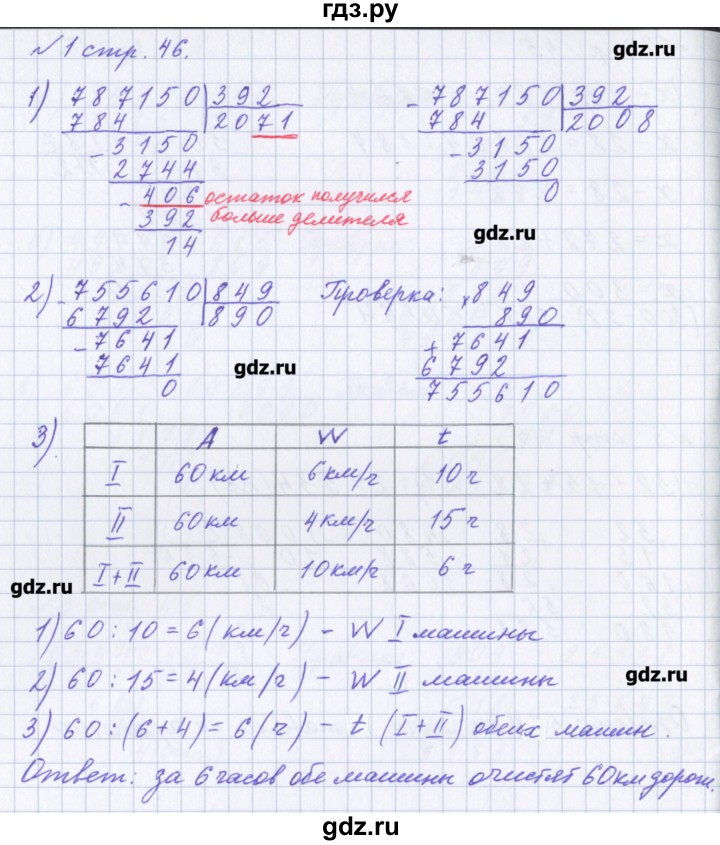 гдз.ру
№1 стр. 46.
gdz.ru
1) 787150 392
784 2071
- 3150
2744
- 406 остаток получился
392 больше делителя
14
- 787150 392
784 2008
- 3150
3150
0
gdz.ru
2) - 755610 849
6792 890
- 7641
7641
0
gdz.ru
Проверка: x 849
890
+ 7641
6792
755610
gdz.ru
3).
A W t
I 60 км 6 км/ч 10 ч
II 60 км 4 км/ч 15 ч
I+II 60 км 10 км/ч 6 ч
gdz.ru
gdz.ru
1) 60 : 10 = 6 (км/ч) - W I машины
2) 60 : 15 = 4 (км/ч) - W II машины
gdz.ru
3) 60 : (6+4) = 6 (ч) - t (I+II) обеих машин.
Ответ: за 6 часов обе машины очистят 60 км дороги.
gdz.ru